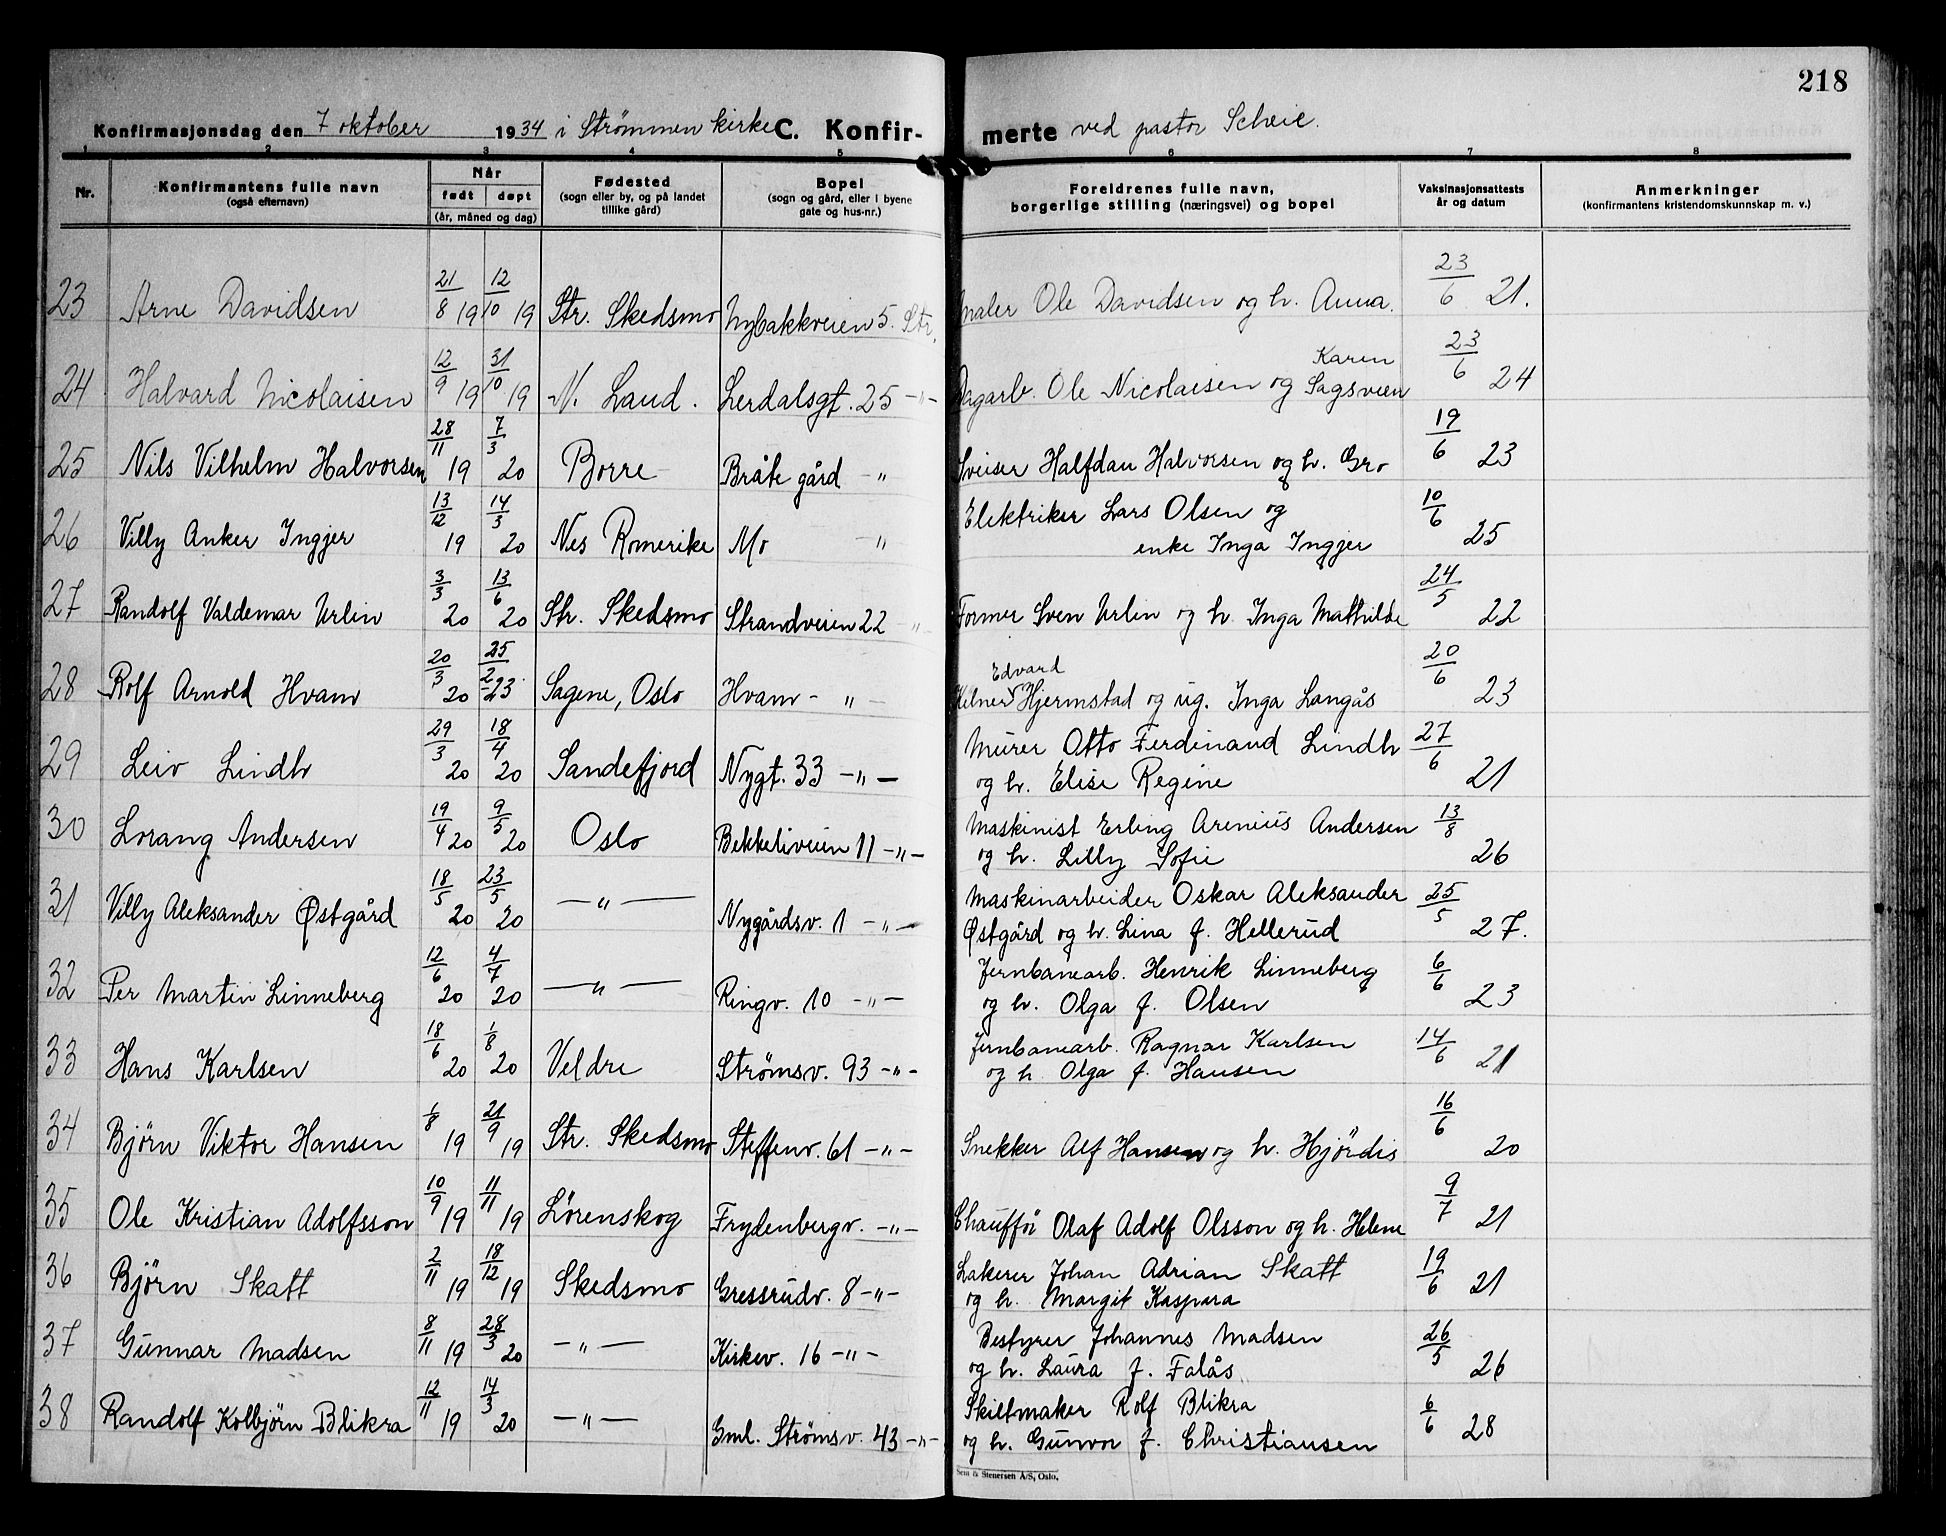 218
Konfirmasjonsdag den 7 oktober 1934 i Strömmen kirke C. Konfirmerte ved pastor Scheie.
1 2 3 4 5 6 7 8
Nr. Konfirmantens fulle navn (også efternavn) Når født døpt (år, måned og dag) Fødested (sogn eller by, og på landet tillike gård) Bopel (sogn og gård, eller i byene gate og hus-nr.) Foreldrenes fulle navn, borgerlige stilling (næringsvei) og bopel Vaksinasjonsattests år og datum Anmerkninger (konfirmantens kristendomskunnskap m. v.)
23 Arne Davidsen 21/8 19 12/10 19 Str. Skedsmo Nybakkveien 5. Str. Maler Ole Davidsen og h. Anna. 23/6 21.
24 Halvard Nicolaisen 12/9 19 31/10 19 N. Land. Lerdalsgt. 25 -"- Dagarb. Ole Nicolaisen og Karen Sagsveen 23/6 24
25 Nils Vilhelm Halvorsen 28/11 19 7/3 20 Borre Bråte gård -" Sveiser Halfdan Halvorsen og h. Gro 19/6 23
26 Villy Anker Ingjer 13/12 19 14/3 20 Nes Romerike Mo -" Elektriker Lars Olsen og
enke Inga Ingjer 10/6 25
27 Randolf Valdemar Urlin 3/3 20 13/6 20 Str. Skedsmo Strandveien 22 -"- Former Sven Urlin og h. Inga Mathilde 24/5 22
28 Rolf Arnold Hvam 20/3 20 25/2 23 Sagene, Oslo Hvam - " - Kelner Edvard Hjermstad og ug. Inga Langås 20/6 23
29 Leiv Lindh 29/3 20 18/4 20 Sandefjord Nygt. 33 -"- Murer Otto Ferdinand Lindh
og h. Elise Regine 27/6 21
30 Lorang Andersen 19/4 20 9/5 20 Oslo Bekkeliveien 11 -"- Maskinist Erling Arenius Andersen
og h. Lilly Sofie 13/8 26
31 Villy Aleksander Østgård 18/5 20 23/5 20 -"- Nygårdsv. 1 -"- Maskinarbeider Oskar Aleksander
Østgård og h. Lina f. Hellerud 25/5 27.
32 Per Martin Linneberg 12/6 20 4/7 20 -"- Ringv. 10 -"- Jernbanearb. Henrik Linneberg
og h. Olga f. Olsen 6/6 23
33 Hans Karlsen 18/6 20 1/8 20 Veldre Strømsv. 93 -"- Jernbanearb. Ragnar Karlsen
og h. Olga f. Hansen 14/6 21
34 Björn Viktor Hansen 1/8 19 21/9 19 Str. Skedsmo Steffenv. 61 -"- Snekker Alf Hansen og h. Hjördis 16/6 20
35 Ole Kristian Adolfsson 10/9 19 11/11 19 Lörenskog Frydenbergv. -"- Chaufför Olaf Adolf Olsson og h. Helene 9/7 21
36 Björn Skatt 2/11 19 18/12 19 Skedsmo Gressrudv. 8 -"- Lakerer Johan Adrian Skatt
og h. Margit Kaspara 19/6 21
37 Gunnar Madsen 8/11 19 28/3 20 -"- Kirkev. 16 -"- Bestyrer Johannes Madsen
og h. Laura f. Falås 26/5 26
38 Randolf Kolbjörn Blikra 12/11 19 14/3 20 -"- Gml. Strømsv. 43 -"- Skiltmaker Rolf Blikra
og h. Gunvor f. Christiansen 6/6 28
Sem & Stenersen A/S, Oslo.